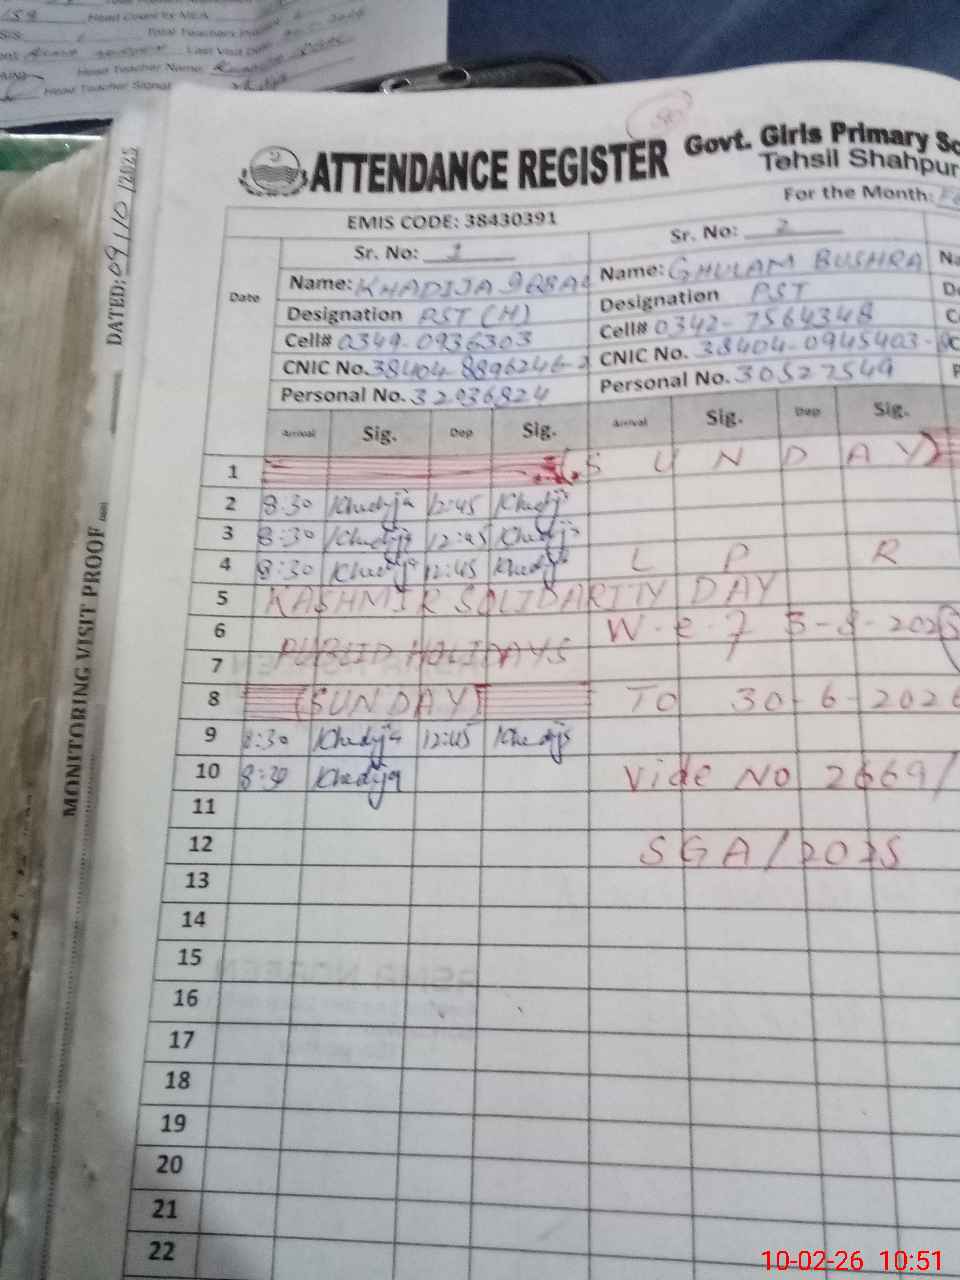 Head Count by MEA
Total Teachers
Last Visit Date
Head Teacher Name:
Head Teacher Signat
ATTENDANCE REGISTER Govt. Girls Primary Sc
Tehsil Shahpur
For the Month: Fe
EMIS CODE: 38430391
Sr. No: 1 Sr. No: 2
Date
Name: KHADIJA IQBAL Name: GHULAM BUSHRA Na
Designation PST (H) Designation PST De
Cell# 0349-0936303 Cell# 0342-7564348 C
CNIC No. 38404-8896246- CNIC No. 38404-0945403-
Personal No. 32936824 Personal No. 30527549 P
Arrival Sig. Dep Sig. Arrival Sig. Dep Sig.
1 (SUNDAY)
2 8:30 Khadija 12:45 Khadija
3 8:30 Khadija 12:45 Khadija
4 8:30 Khadija 12:45 Khadija L P R
5 KASHMIR SOLIDARITY DAY
6 W.e.f 5-8-2025
7 PUBLIC HOLIDAYS
8 (SUNDAY) TO 30-6-2026
9 8:30 Khadija 12:45 Khadija
10 8:30 Khadija Vide NO 2669/
11
12 SGA/2025
13
14
15
16
17
18
19
20
21
22
MONITORING VISIT PROOF
DATED: 09/10/2025
10-02-26 10:51